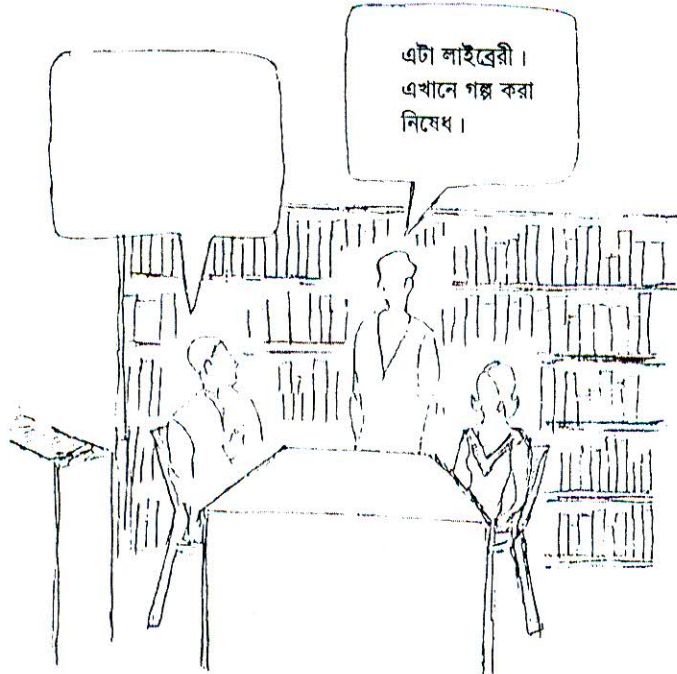 এটা লাইব্রেরী।
এখানে গল্প করা
নিষেধ।